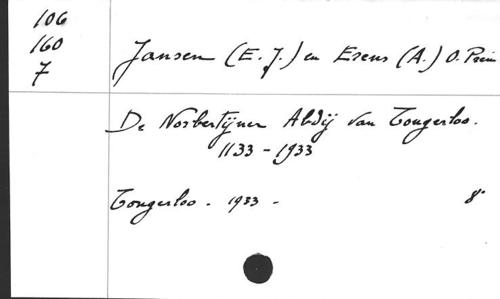 106
160
7
Jansen (E. J.) en Erens (A.) O. Prem
De Norbertijner Abdij van Tongerloo.
1133 - 1933
Tongerloo. 1933 - 8°